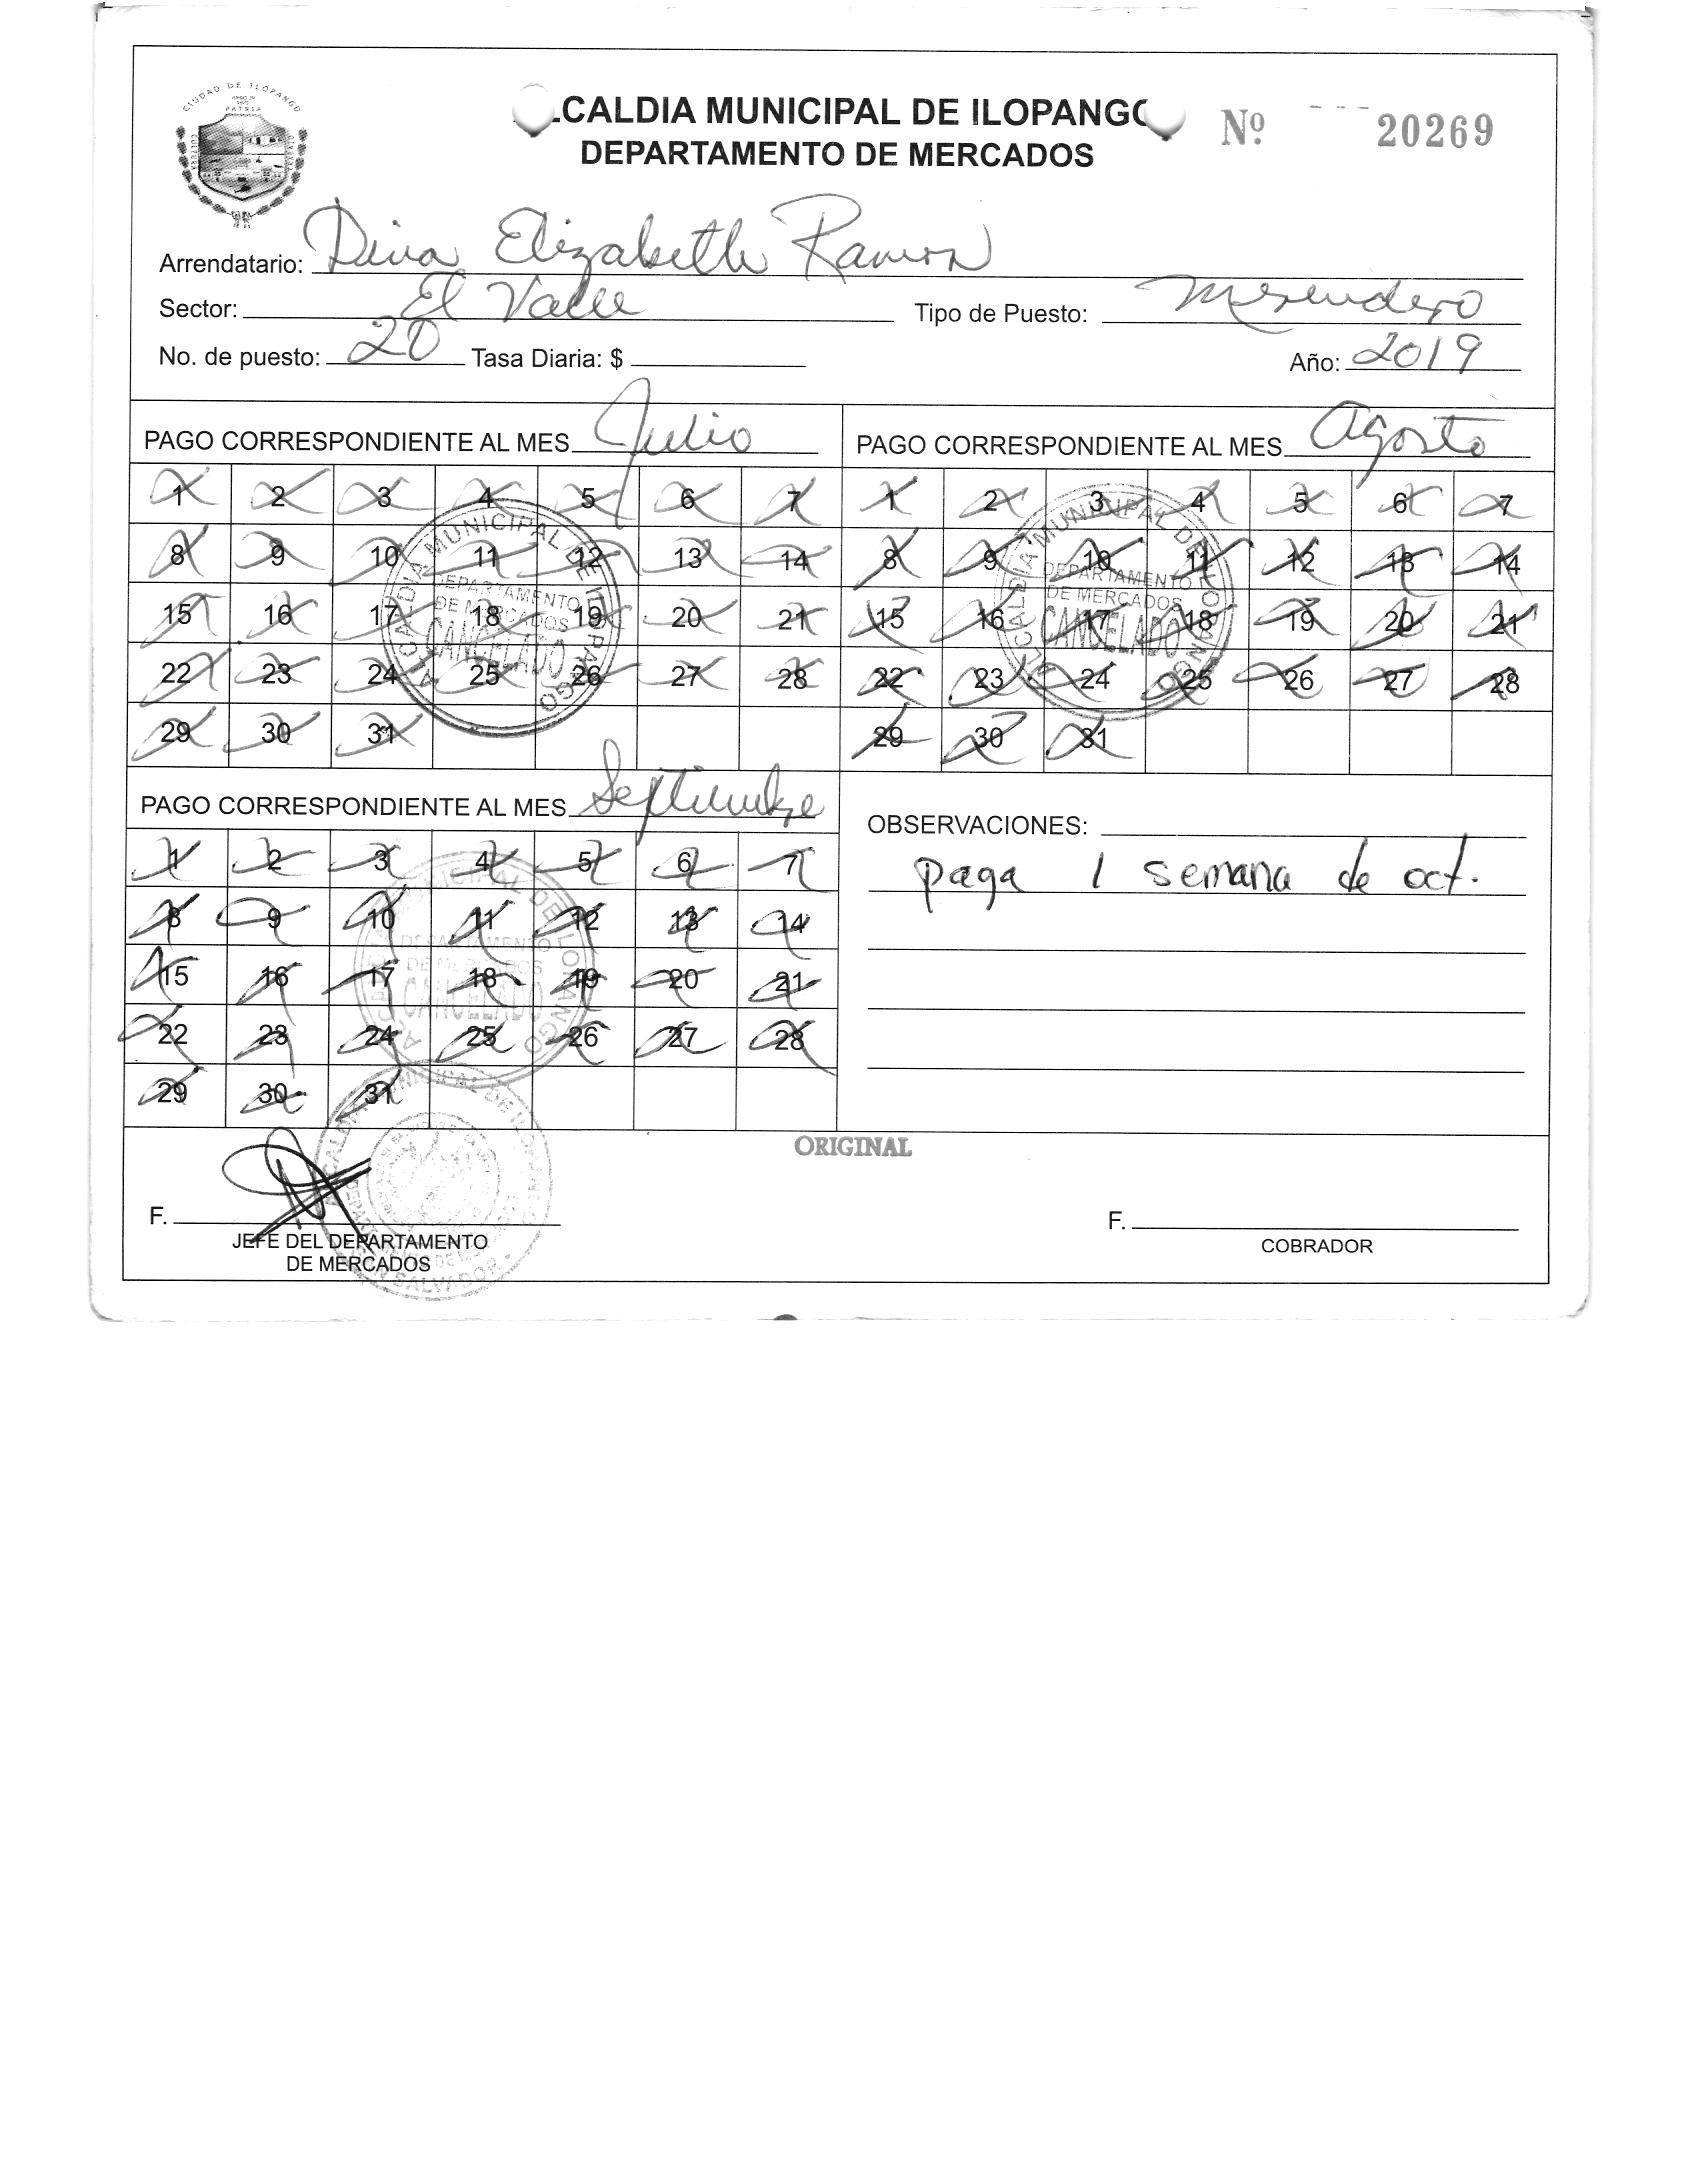 CIUDAD DE ILOPANGO
PATRIA
CULTURA
CALDIA MUNICIPAL DE ILOPANGO
DEPARTAMENTO DE MERCADOS
Nº 20269
Arrendatario: Dina Elizabeth Ramon
Sector: El Valle Tipo de Puesto: Merendero
No. de puesto: 20 Tasa Diaria: $ Año: 2019
PAGO CORRESPONDIENTE AL MES Julio
1 2 3 4 5 6 7
8 9 10 11 12 13 14
15 16 17 18 19 20 21
22 23 24 25 26 27 28
29 30 31
ALCALDIA MUNICIPAL DE ILOPANGO
DEPARTAMENTO
DE MERCADOS
CANCELADO
PAGO CORRESPONDIENTE AL MES Agosto
1 2 3 4 5 6 7
8 9 10 11 12 13 14
15 16 17 18 19 20 21
22 23 24 25 26 27 28
29 30 31
ALCALDIA MUNICIPAL DE ILOPANGO
DEPARTAMENTO
DE MERCADOS
CANCELADO
PAGO CORRESPONDIENTE AL MES Septiembre
1 2 3 4 5 6 7
8 9 10 11 12 13 14
15 16 17 18 19 20 21
22 23 24 25 26 27 28
29 30 31
ALCALDIA MUNICIPAL DE ILOPANGO
DEPARTAMENTO
DE MERCADOS
CANCELADO
OBSERVACIONES:
paga 1 semana de oct.
ORIGINAL
F.
JEFE DEL DEPARTAMENTO
DE MERCADOS
ALCALDIA MUNICIPAL DE ILOPANGO
SAN SALVADOR
F.
COBRADOR